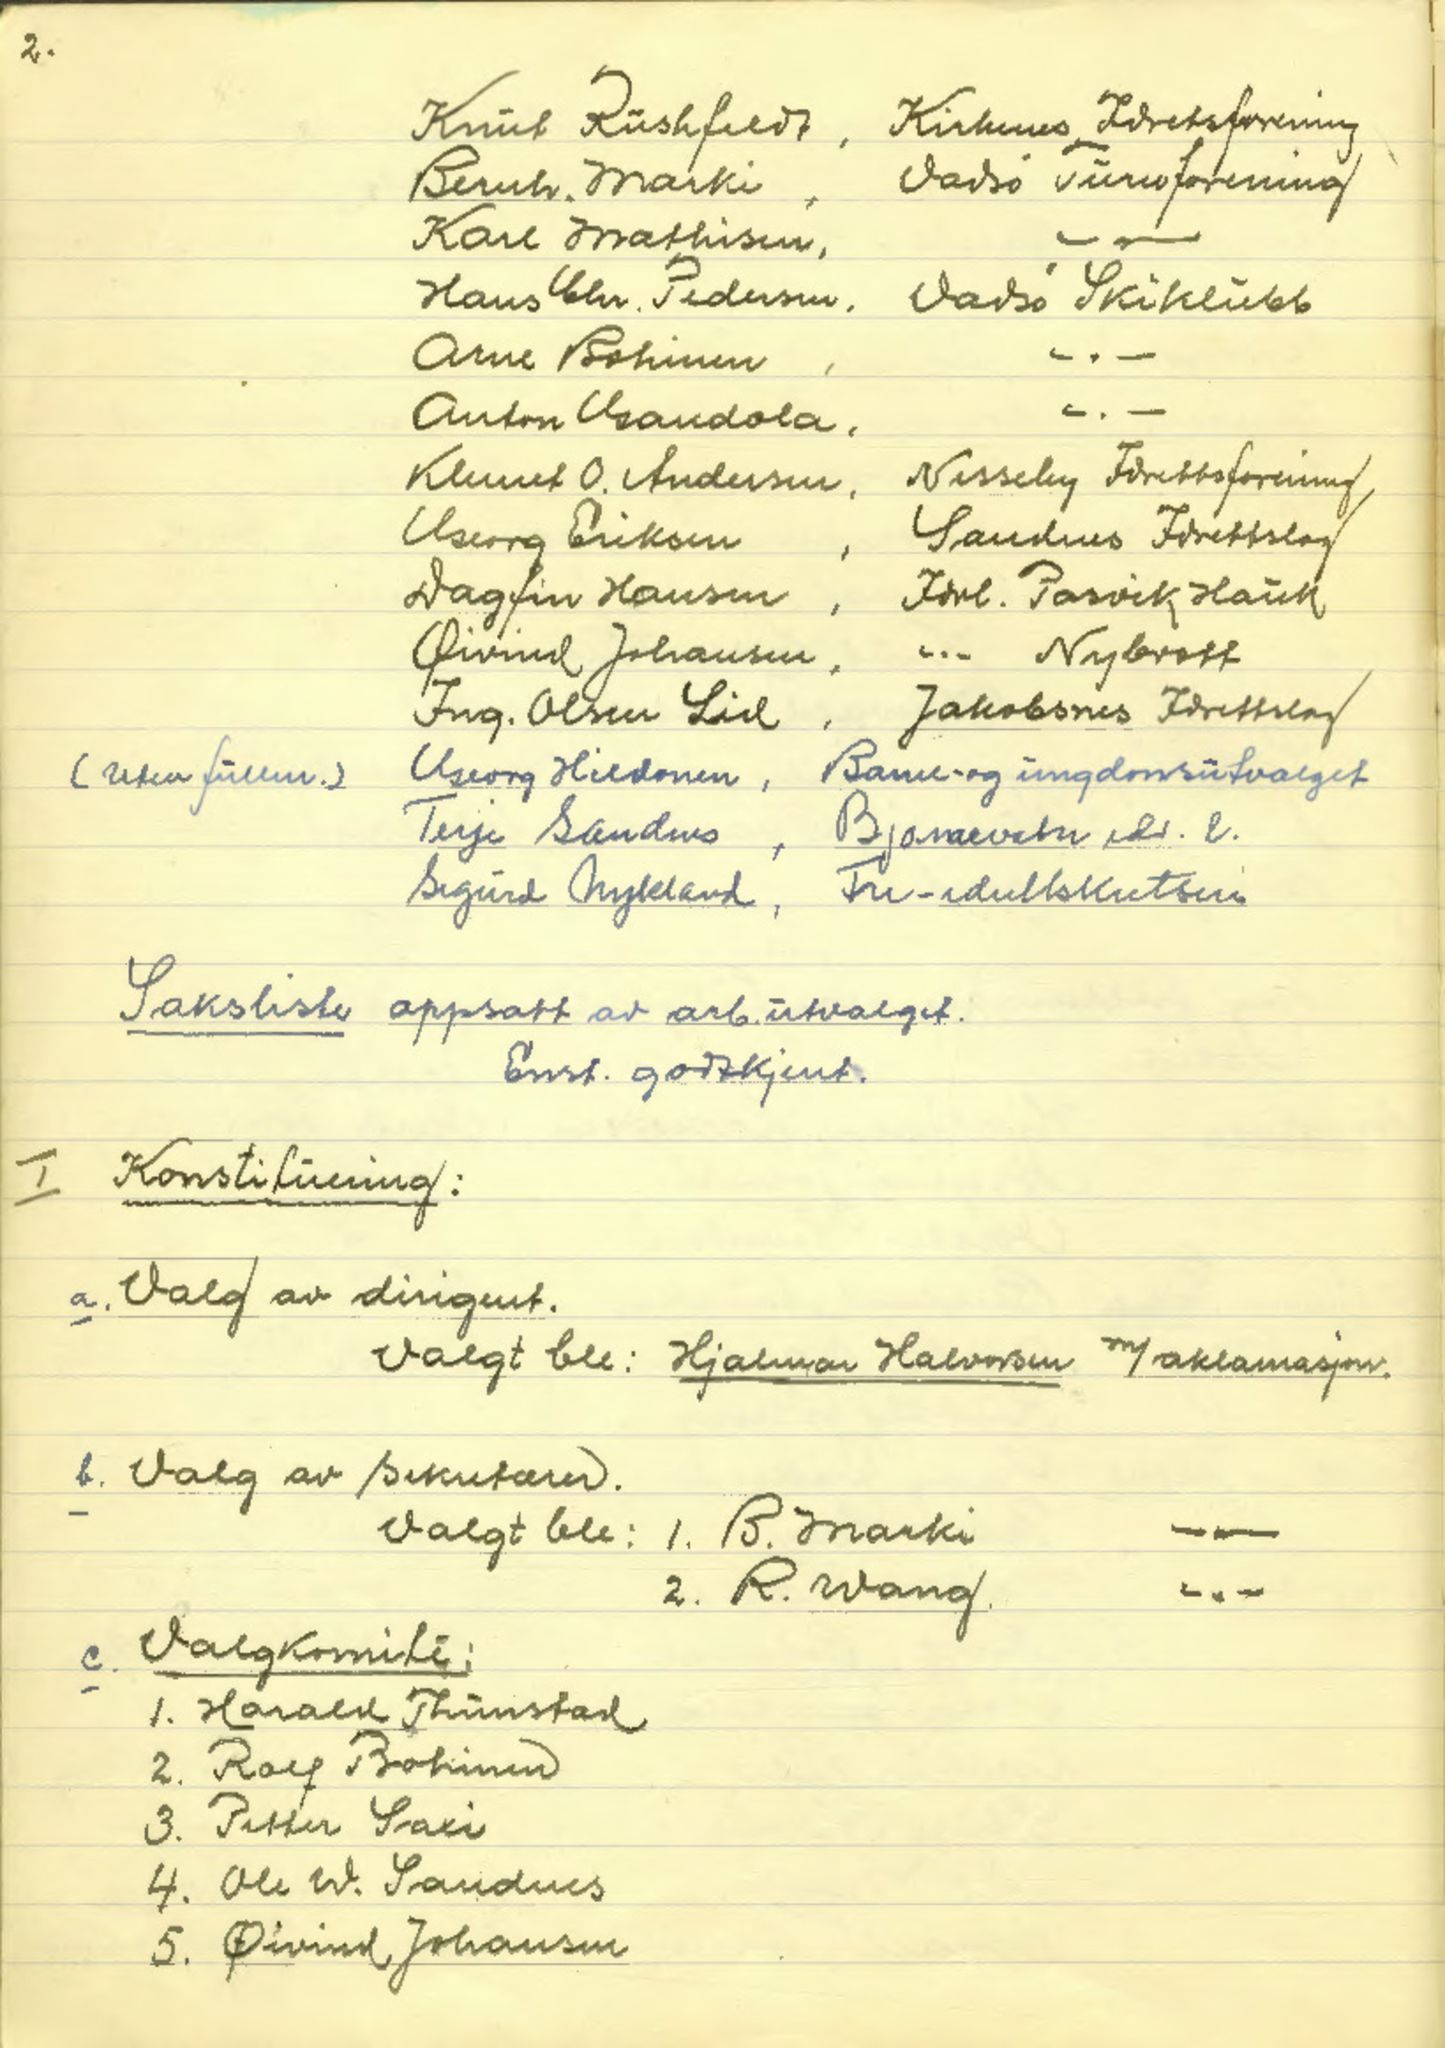 2.
Knut Rushfeldt, Kirkenes Idretsforening
Bernh. Marki, Vadsö Turnforening
Kare Mathisen, — " —
Hans Chr. Pedersen, Vadsö Skiklubb
Arne Bohinen, - . -
Anton Grandola, - . -
Klemet O. Andersen, Nesseby Idrettsforening,
Georg Eriksen, Sandnes Idrettslag
Dagfin Hansen, Idrl. Pasvik Hauk
Øivind Johansen, -..- Nybrott
Ing. Olsen Lid, Jakobsnes Idrettslag
(Uten fullm.) Georg Hildonen, Barne-og ungdomsutvalget
Terje Sandnes, Bjørnevatn id. l.
Sigurd Nykland, Fri-
Saksliste oppsatt av arb.utvalget.
Enst. godkjent.
I Konstituering:
a. Valg av dirigent.
Valgt ble: Hjalmar Halvorsen m/aklamasjon.
b. Valg av sekretærer.
Valgt ble: 1. B. Marki — " —
2. R. Wang. - . -
c. Valgkomité:
1. Harald Thunstad
2. Rolf Bohinen
3. Petter Saxi
4. Ole W. Sandnes
5. Øivind Johansen